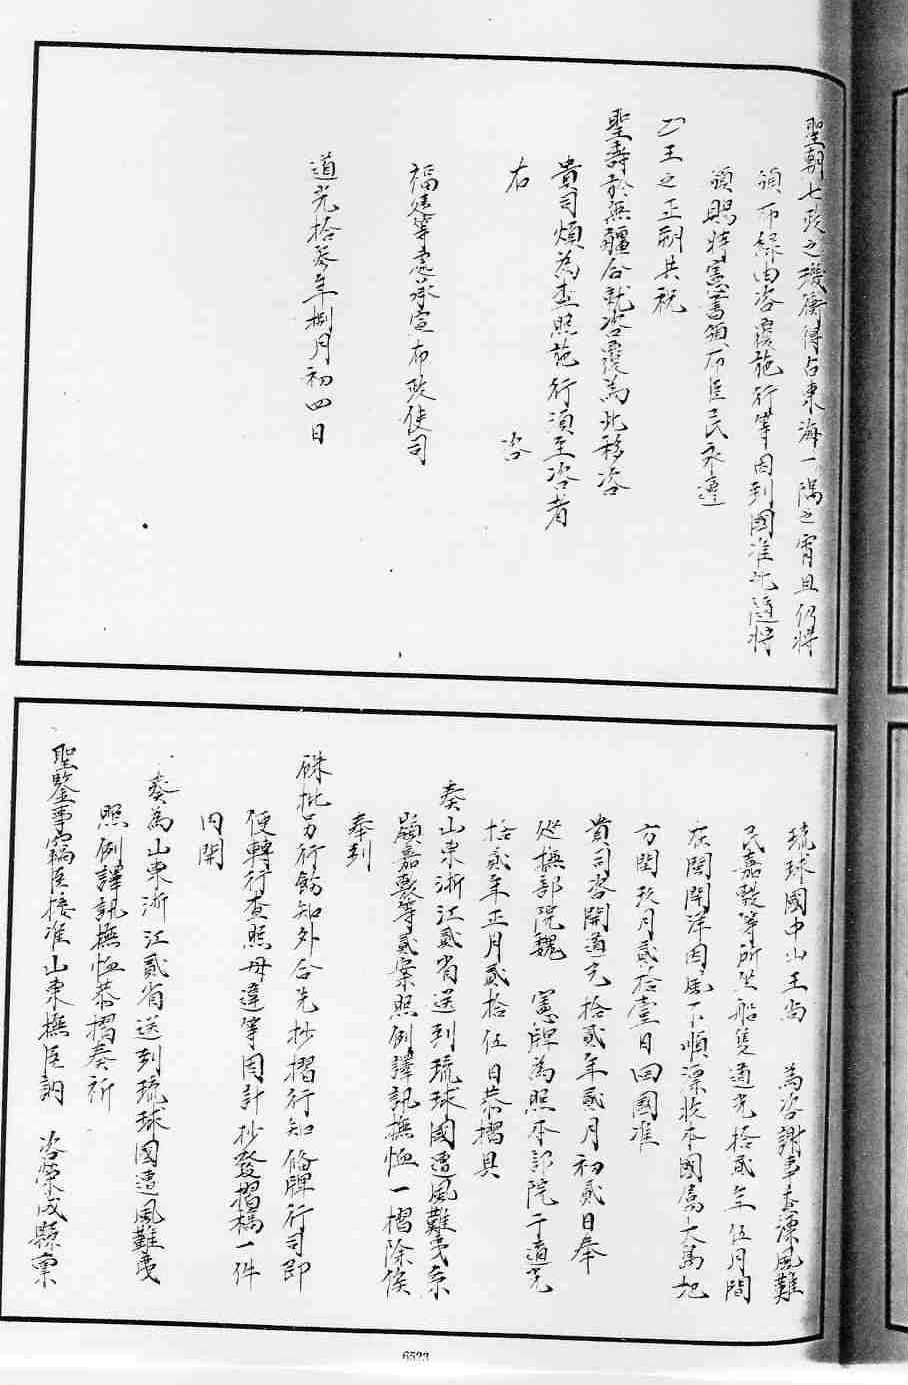 聖朝七政之璣衡得占東海一隅之霄且仍將
頒布緣由咨覆施行等因到國准此隨將
頒賜時憲書頒布臣民永遵
一王之正朔共祝
聖壽於無疆合就咨覆為此移咨
貴司煩為查照施行須至咨者
右 咨
福建等處承宣布政使司
道光拾叁年捌月初四日
琉球國中山王尚 為咨謝事查漂風難
民嘉數等所坐船隻道光拾貳年伍月間
在閩開洋因風不順漂收本國屬大島地
方閏玖月貳拾壹日回國准
貴司咨開道光拾貳年貳月初貳日奉
從撫部院魏 憲牌為照本部院于道光
拾貳年正月貳拾伍日恭摺具
奏山東浙江貳省送到琉球國遭風難夷
嘉數等貳案照例譯訊撫恤一摺除俟
奉到
硃批另行飭知外合先抄摺行知備牌行司即
便轉行查照毋違等因計抄發摺稿一件
內開
奏為山東浙江貳省送到琉球國遭風難夷
照例譯訊撫恤恭摺奏祈
聖鑒事竊臣接准山東撫臣訥 咨榮成縣稟
6523